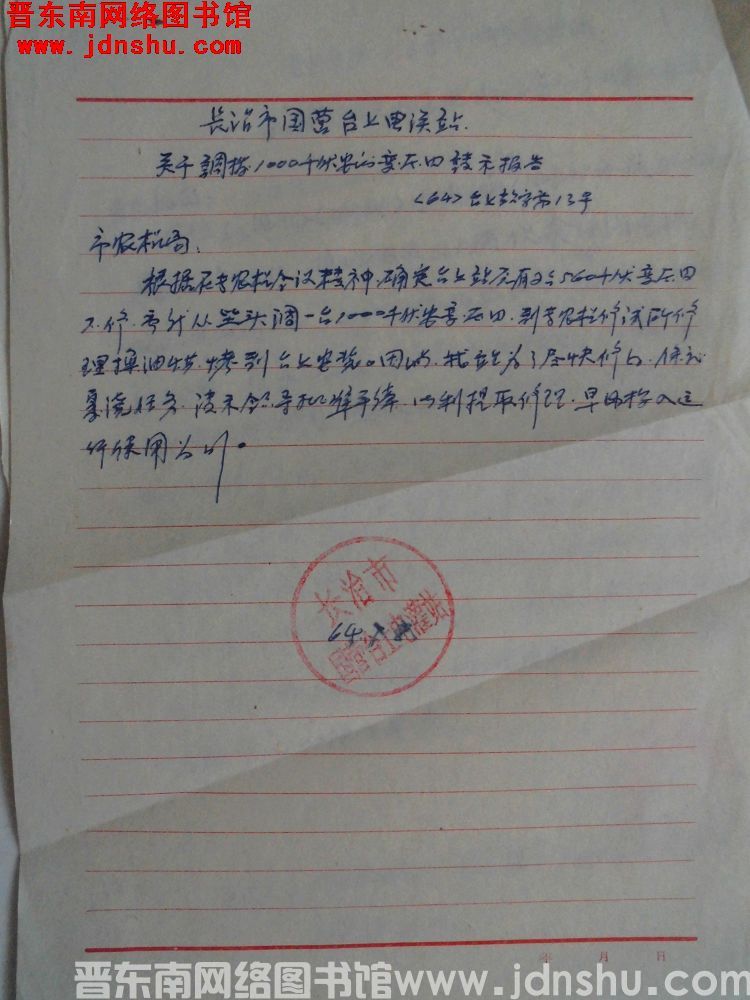 晋东南网络图书馆
www.jdnshu.com
长治市国营台上电灌站
关于調拨1000千伏安的变压四請示报告
<64>台上电字第13号
市农机局：
根据 专农机会议精神，确定台上站 有2台560千伏变压四
不修，另外从 头调一台1000千伏安变压四，到专农机修试所修
理换油烘烤到台上安装。因此，我站为了尽快修 ，保证
夏浇任务，请示领导批准手续，以利提取修理，早日投入运
行使用为 。
长治市
国营台上电灌站
64.
年 月 日
晋东南网络图书馆www.jdnshu.com